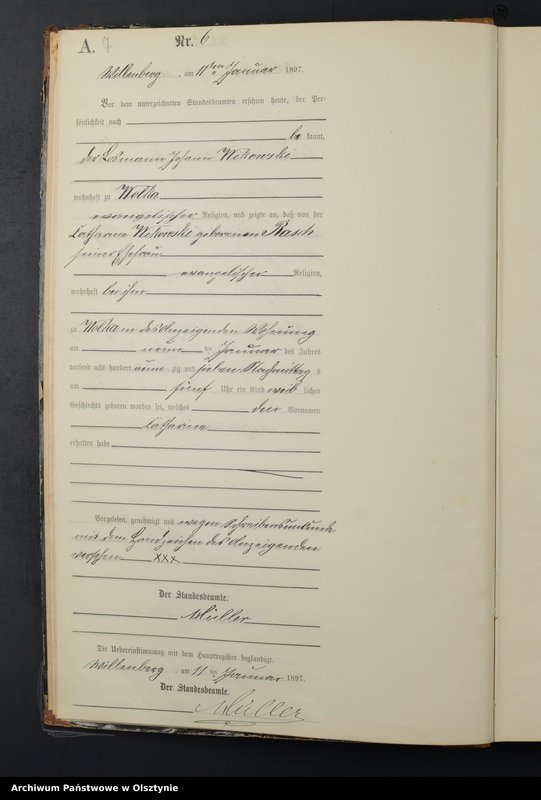 A. 7 Nr. 6
Willenberg, am 11ten Januar 1897.
Vor dem unterzeichneten Standesbeamten erschien heute, der Per-
sönlichkeit nach
be kannt,
der Losmann Johann
wohnhaft zu Wolka
evangelischer Religion, und zeigte an, daß von der
Catharine geborenen Rasch
seiner Ehefrau
evangelischer Religion,
wohnhaft bei ihm
zu Wolka in des Anzeigenden Wohnung
am neun ten Januar des Jahres
tausend acht hundert neunzig und sieben Nachmittags
um fünf Uhr ein Kind weiblichen
Geschlechts geboren worden sei, welches den Vornamen
Catharine
erhalten habe
Vorgelesen, genehmigt und wegen Schreibensunkunde
mit dem Handzeichen des Anzeigenden
versehen XXX
Der Standesbeamte.
Müller
Die Uebereinstimmung mit dem Hauptregister beglaubigt.
Willenberg, am 11 ten Januar 1897.
Der Standesbeamte.
Müller
Archiwum Państwowe w Olsztynie